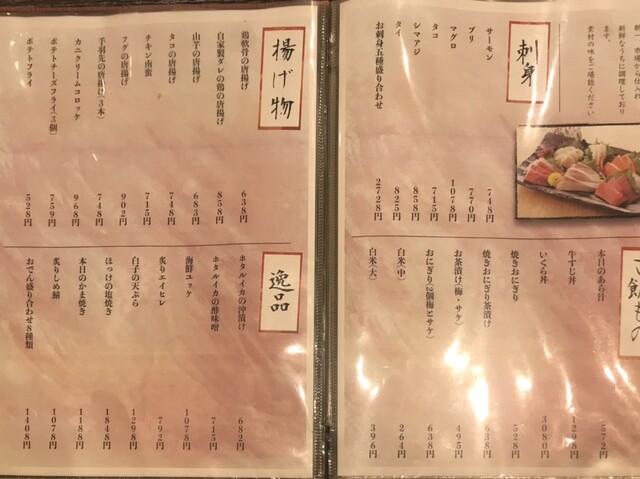 を仕入れ
ます。
新鮮なうちに調理しており
素材の味をご堪能ください
刺身
サーモン 748円
ブリ 770円
マグロ 1078円
タコ 715円
シマアジ 858円
タイ 825円
お刺身五種盛り合わせ 2728円
ご飯もの
本日のあら汁 572円
牛すじ丼 1298円
いくら丼 3080円
焼きおにぎり 528円
焼きおにぎり茶漬け 638円
お茶漬け(梅・サケ) 495円
おにぎり(2個梅とサケ) 638円
白米(中) 264円
白米(大) 396円
揚げ物
鶏軟骨の唐揚げ 638円
自家製ダレの鶏の唐揚げ 858円
山芋の唐揚げ 683円
タコの唐揚げ 748円
チキン南蛮 715円
フグの唐揚げ 902円
手羽先の唐揚げ(3本) 748円
カニクリームコロッケ 968円
ポテトチーズフライ(3個) 759円
ポテトフライ 528円
逸品
ホタルイカの沖漬け 682円
ホタルイカの酢味噌 715円
海鮮ユッケ 1078円
炙りエイヒレ 792円
白子の天ぷら 1298円
ほっけの塩焼き 1848円
本日のかま焼き 1188円
炙りしめ鯖 1078円
おでん盛り合わせ8種類 1408円